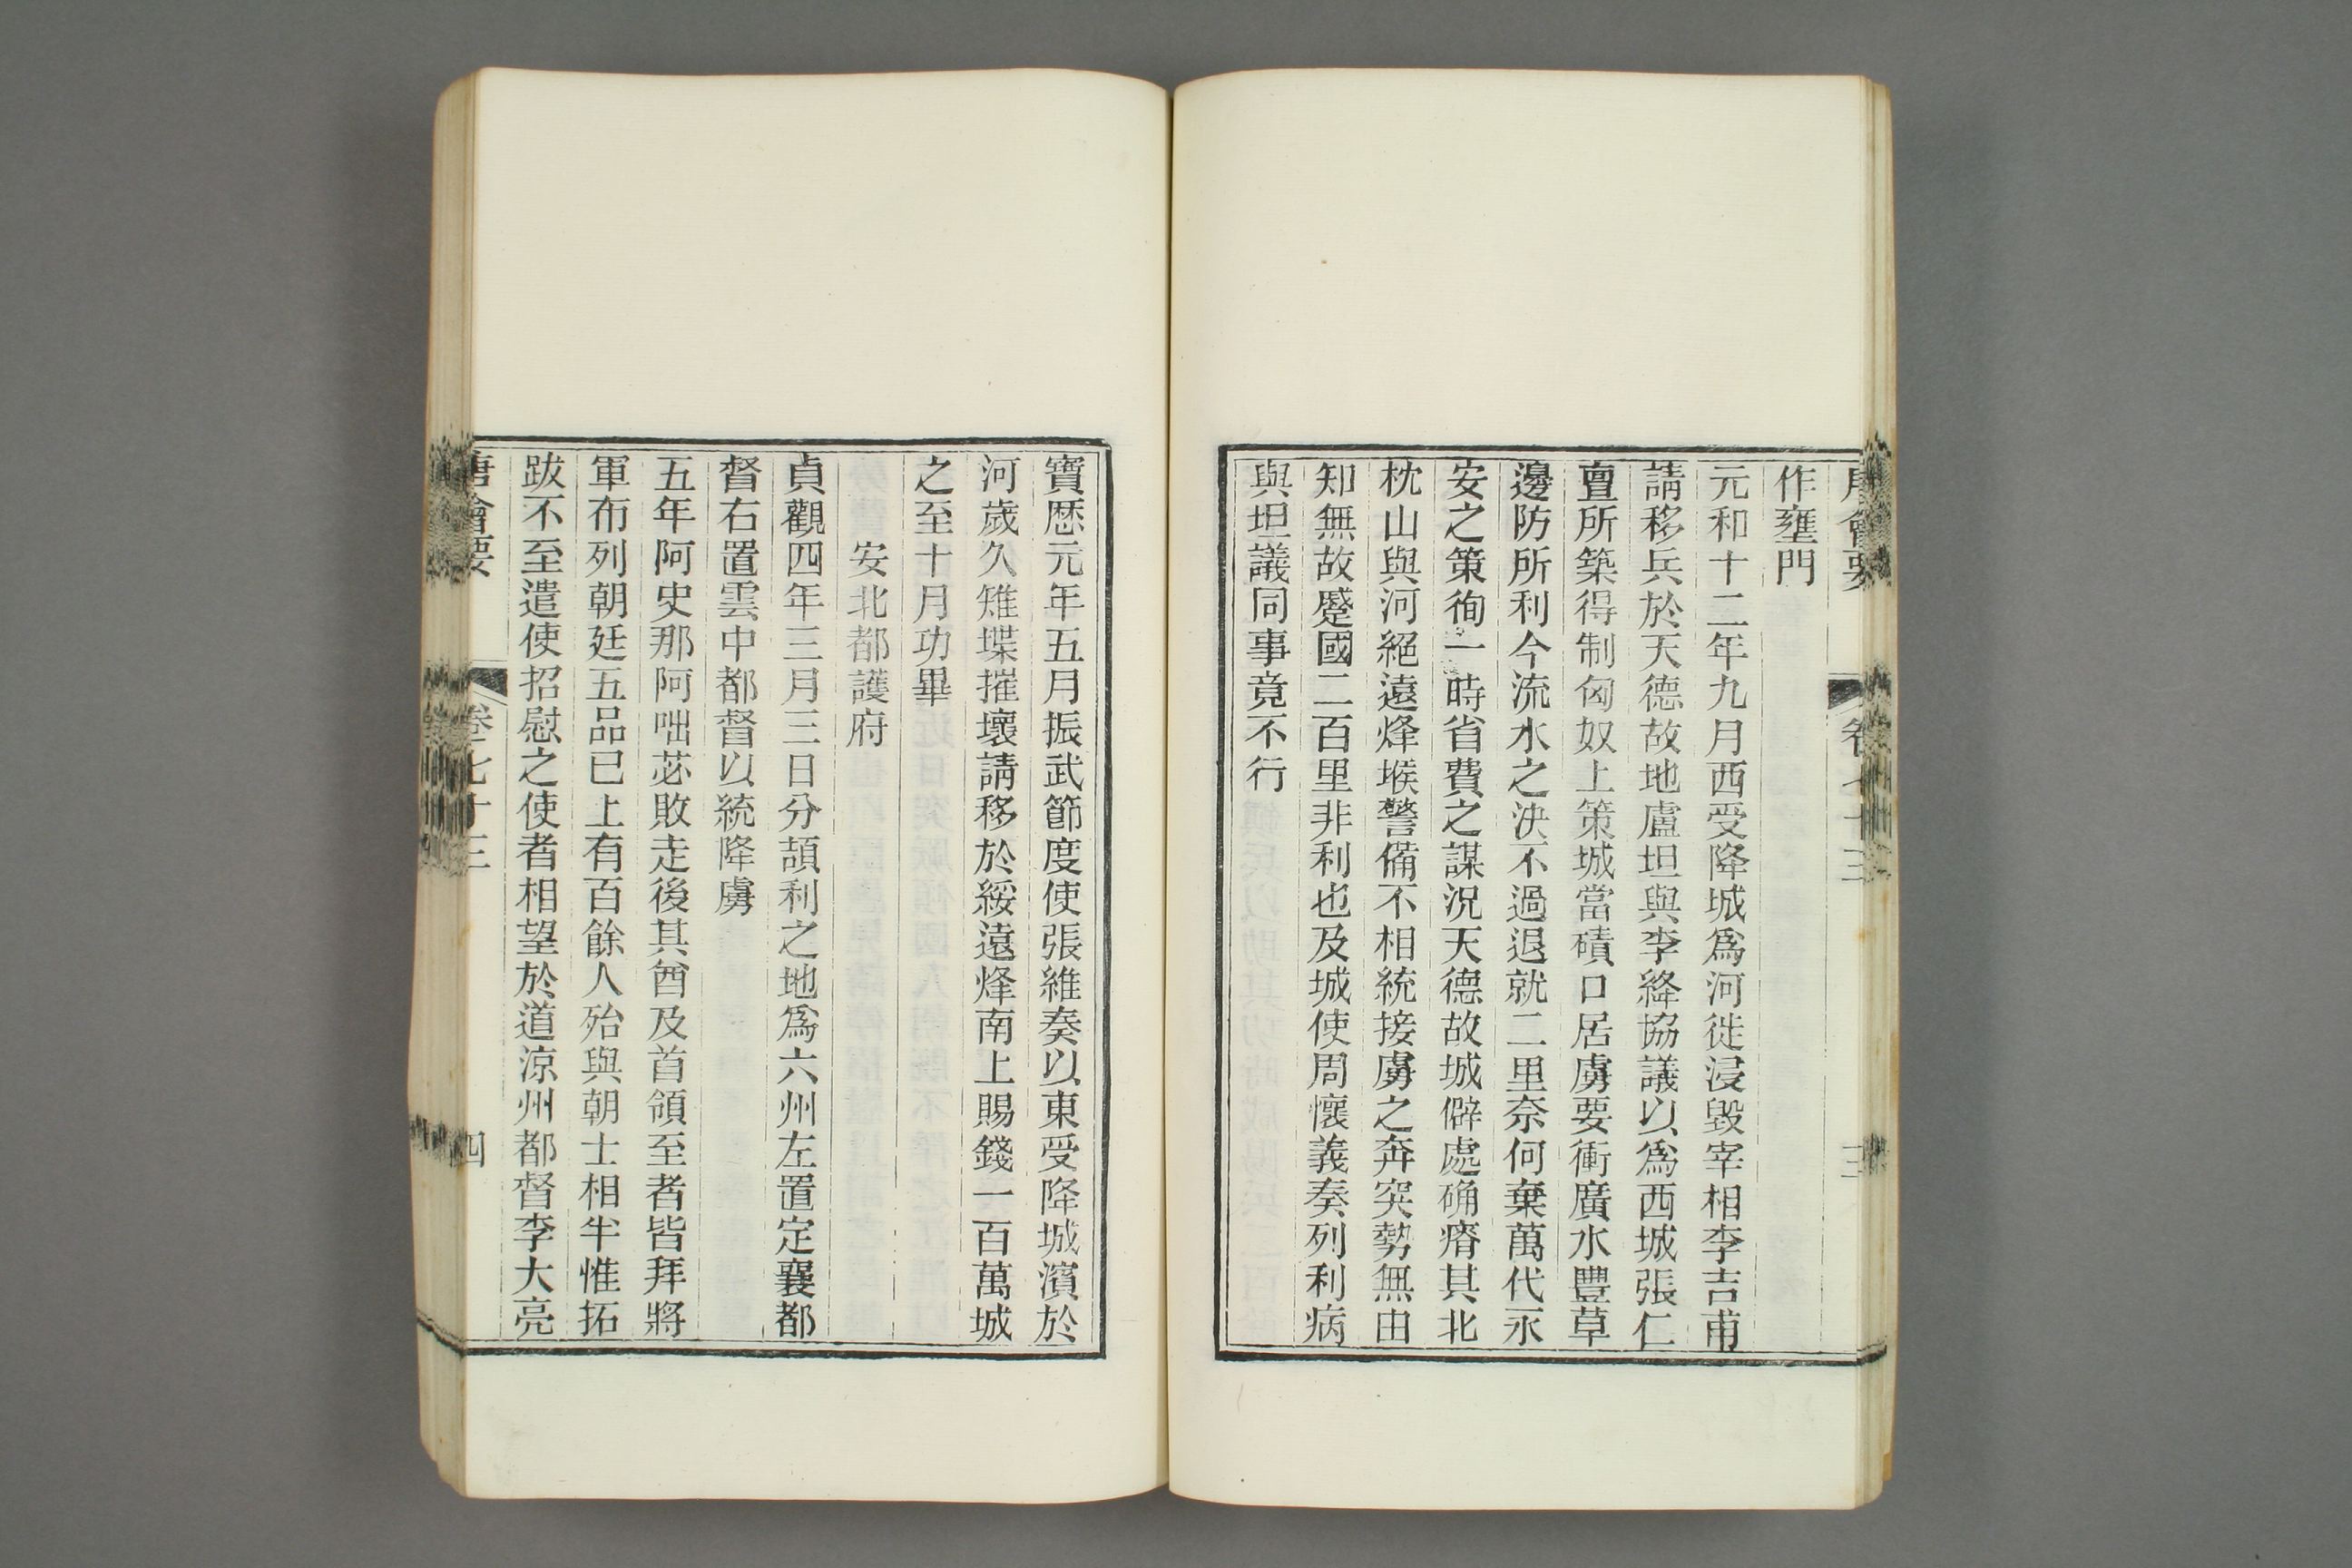 作壅門
元和十二年九月西受降城爲河徙浸毀宰相李吉甫
請移兵於天德故地盧坦與李絳協議以爲西城張仁
亶所築得制匈奴上策城當磧口居虜要衝廣水豐草
邊防所利今流水之決不過退就二里奈何棄萬代永
安之策徇一時省費之謀況天德故城僻處确瘠其北
枕山與河絕遠烽堠警備不相統接虜之奔突勢無由
知無故蹙國二百里非利也及城使周懷義奏列利病
與坦議同事竟不行
寶歷元年五月振武節度使張維奏以東受降城濱於
河歲久雉堞摧壞請移於綏遠烽南上賜錢一百萬城
之至十月功畢
安北都護府
貞觀四年三月三日分頡利之地爲六州左置定襄都
督右置雲中都督以統降虜
五年阿史那阿咄苾敗走後其酋及首領至者皆拜將
軍布列朝廷五品已上有百餘人殆與朝士相半惟拓
跋不至遣使招慰之使者相望於道涼州都督李大亮
唐會要 卷七十三 四